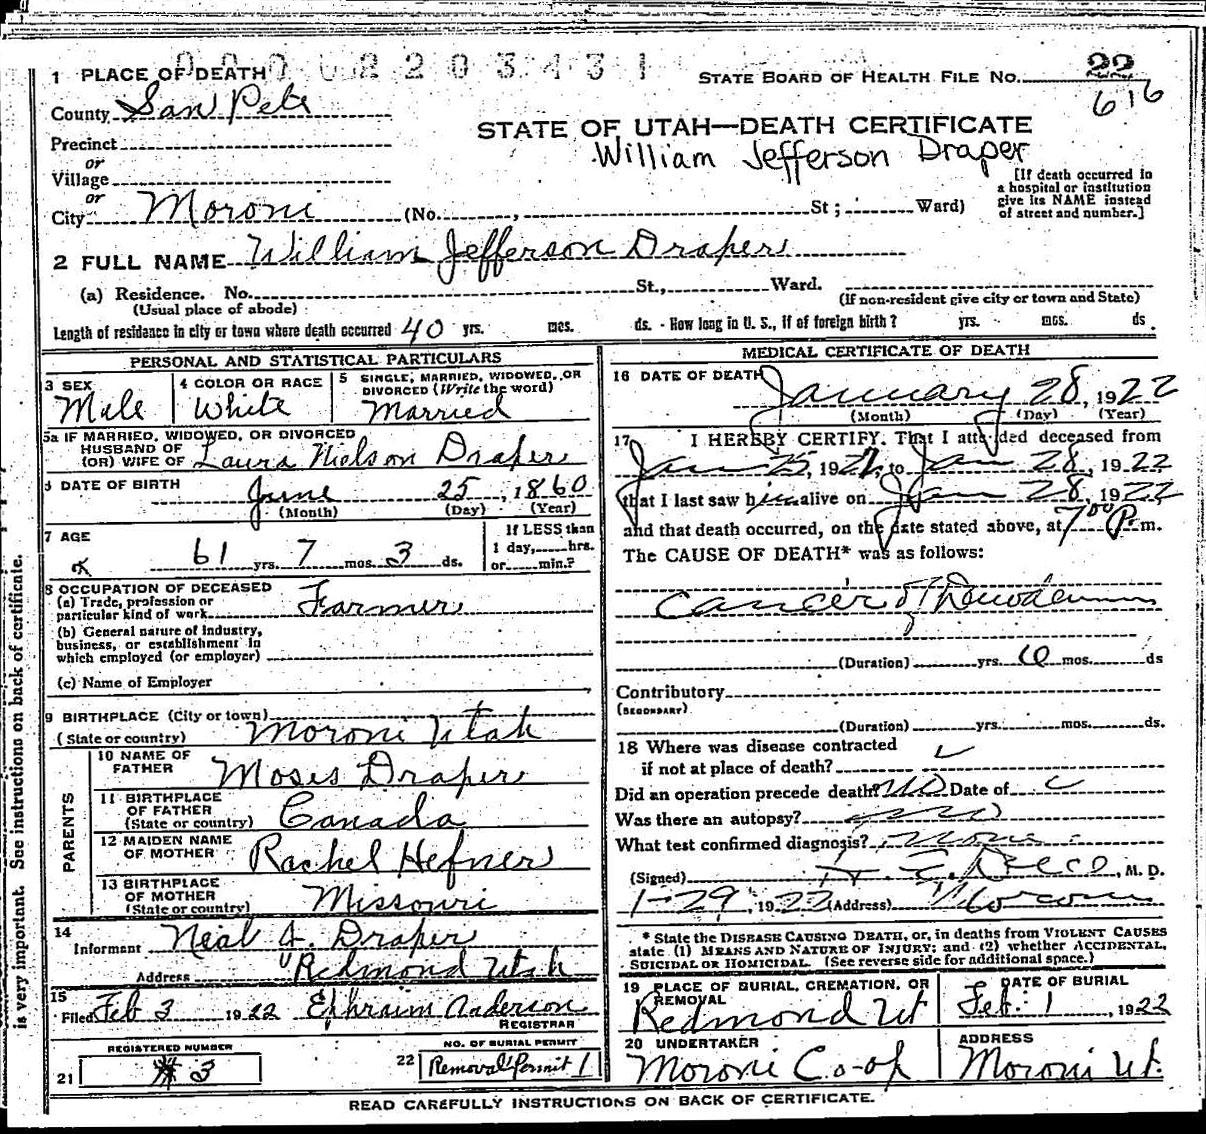 0002203431
1 PLACE OF DEATH
STATE BOARD OF HEALTH FILE No. 22
616
County San Pete
STATE OF UTAH—DEATH CERTIFICATE
William Jefferson Draper
Precinct
or
Village
or
City Moroni (No. , St ; Ward)
[If death occurred in
a hospital or institution
give its NAME instead
of street and number.]
2 FULL NAME William Jefferson Draper
(a) Residence. No. St., Ward.
(Usual place of abode)
(If non-resident give city or town and State)
Length of residence in city or town where death occurred 40 yrs. mos. ds. - How long in U. S., if of foreign birth? yrs. mos. ds.
PERSONAL AND STATISTICAL PARTICULARS
3 SEX
Male
4 COLOR OR RACE
White
5 SINGLE, MARRIED, WIDOWED, OR
DIVORCED (Write the word)
Married
5a IF MARRIED, WIDOWED, OR DIVORCED
HUSBAND OF
(OR) WIFE OF Laura Nielson Draper
6 DATE OF BIRTH
June 25, 1860
(Month) (Day) (Year)
7 AGE
61 yrs. 7 mos. 3 ds.
If LESS than
1 day, hrs.
or min.?
8 OCCUPATION OF DECEASED
(a) Trade, profession or
particular kind of work Farmer
(b) General nature of industry,
business, or establishment in
which employed (or employer)
(c) Name of Employer
9 BIRTHPLACE (City or town)
(State or country) Moroni Utah
PARENTS
10 NAME OF
FATHER Moses Draper
11 BIRTHPLACE
OF FATHER
(State or country) Canada
12 MAIDEN NAME
OF MOTHER Rachel Hefner
13 BIRTHPLACE
OF MOTHER
(State or country) Missouri
14
Informant Neal J. Draper
Address Redmond Utah
15
Filed Feb 3 1922 Ephraim Anderson
REGISTRAR
REGISTERED NUMBER
21 # 3
NO. OF BURIAL PERMIT
22 Removal Permit 1
MEDICAL CERTIFICATE OF DEATH
16 DATE OF DEATH
January 28, 1922
(Month) (Day) (Year)
17 I HEREBY CERTIFY, That I attended deceased from
Jan 25, 1922, to Jan 28, 1922
that I last saw him alive on Jan 28, 1922
and that death occurred, on the date stated above, at 7 00 P. m.
The CAUSE OF DEATH* was as follows:
Cancer of Duodenum
(Duration) yrs. mos. ds
Contributory
(SECONDARY)
(Duration) yrs. mos. ds.
18 Where was disease contracted
if not at place of death?
Did an operation precede death? no Date of
Was there an autopsy? no
What test confirmed diagnosis? None
(Signed) , M. D.
1-29, 1922 (Address) Moroni
* State the DISEASE CAUSING DEATH, or, in deaths from VIOLENT CAUSES
state (1) MEANS AND NATURE OF INJURY; and (2) whether ACCIDENTAL,
SUICIDAL OR HOMICIDAL. (See reverse side for additional space.)
19 PLACE OF BURIAL, CREMATION, OR
REMOVAL
Redmond Ut
DATE OF BURIAL
Feb. 1, 1922
20 UNDERTAKER
Moroni Co-op
ADDRESS
Moroni Ut.
READ CAREFULLY INSTRUCTIONS ON BACK OF CERTIFICATE.
is very important. See instructions on back of certificate.